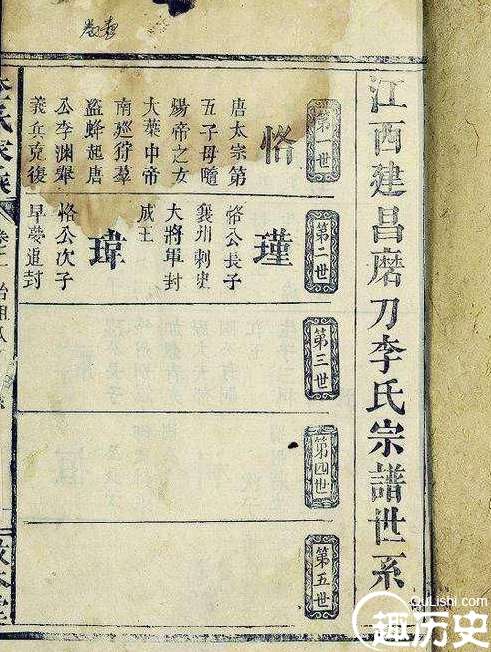 江西建昌磨刀李氏宗譜世系
第一世
恪
唐太宗第
五子母隨
煬帝之女
大葉中帝
南廵狩羣
盜蜂起唐
公李淵舉
義兵克復
第二世
瑾
恪公長子
襄州刺史
大將軍封
成王
瑋
恪公次子
早夢追封
第三世
第四世
第五世
QuLishi.com
趣历史